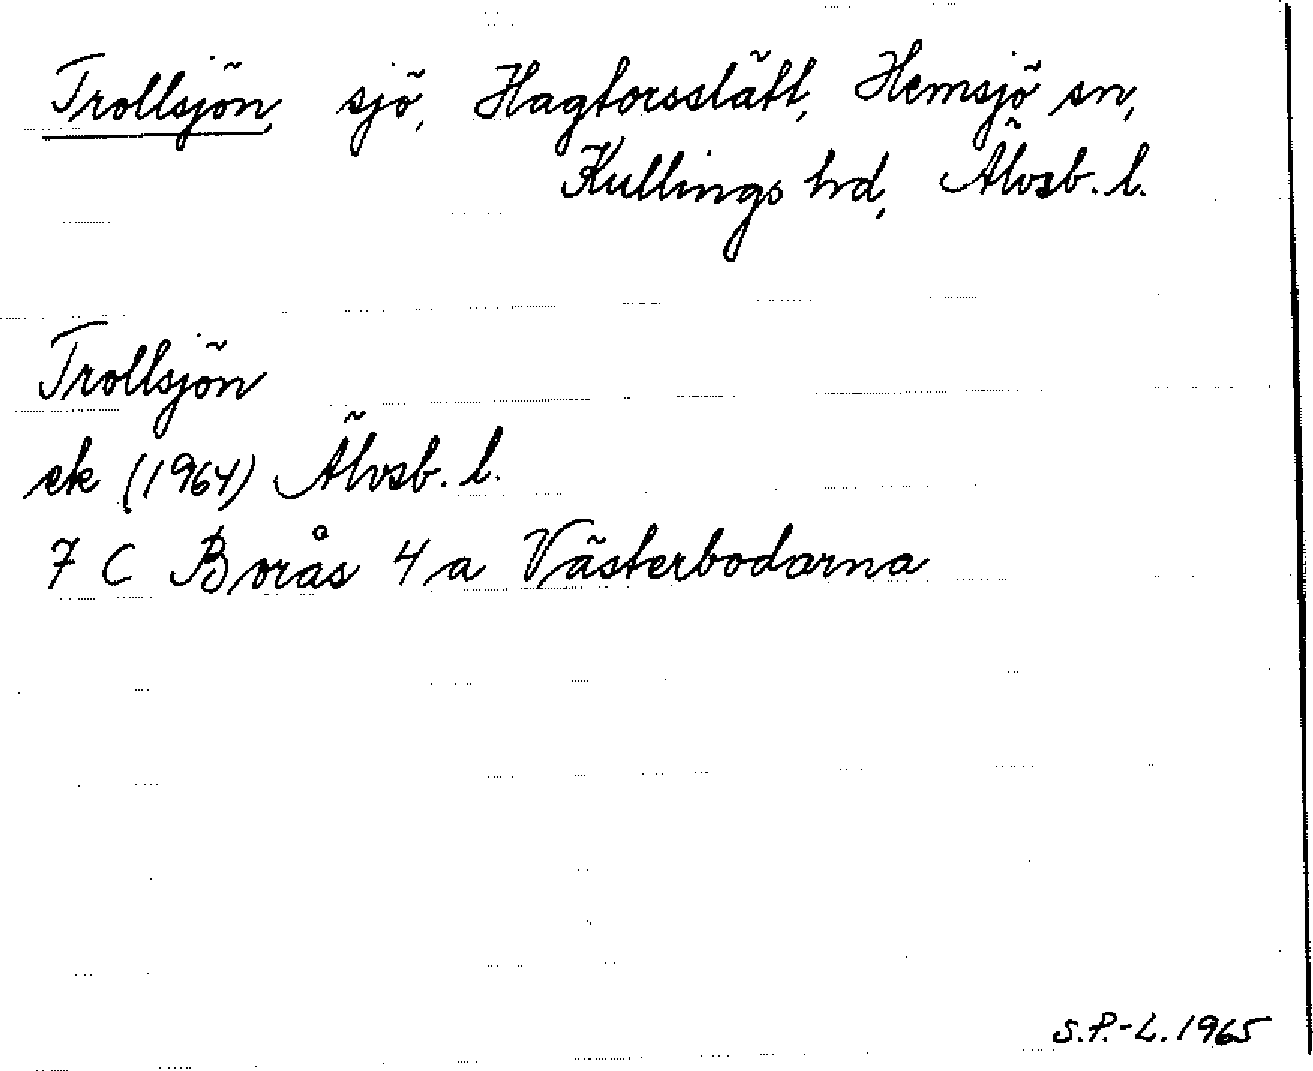 Trollsjön, sjö, Hagforsslätt, Hemsjö sn,
Kullings hd, Älvsb. l.
Trollsjön
ek (1964) Älvsb. l.
7 C Borås 4 a Västerbodarna
S.P.-L. 1965